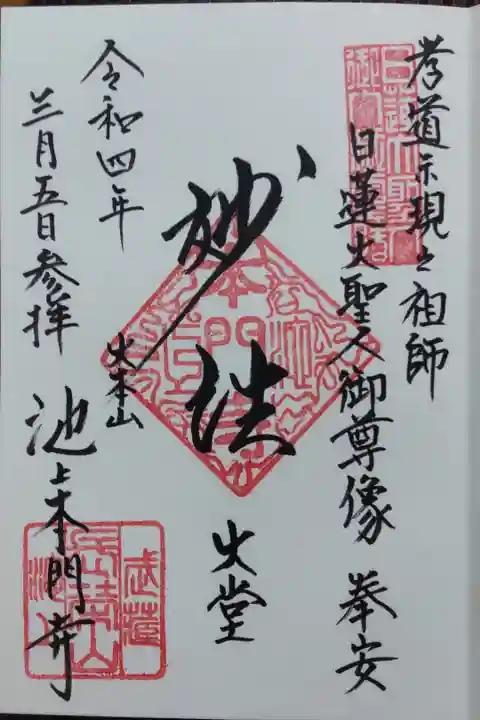 孝道示現之祖師
日蓮大聖人御尊像 奉安
妙法
大堂
令和四年
三月五日参拝
大本山
池上本門寺
本門
武蔵